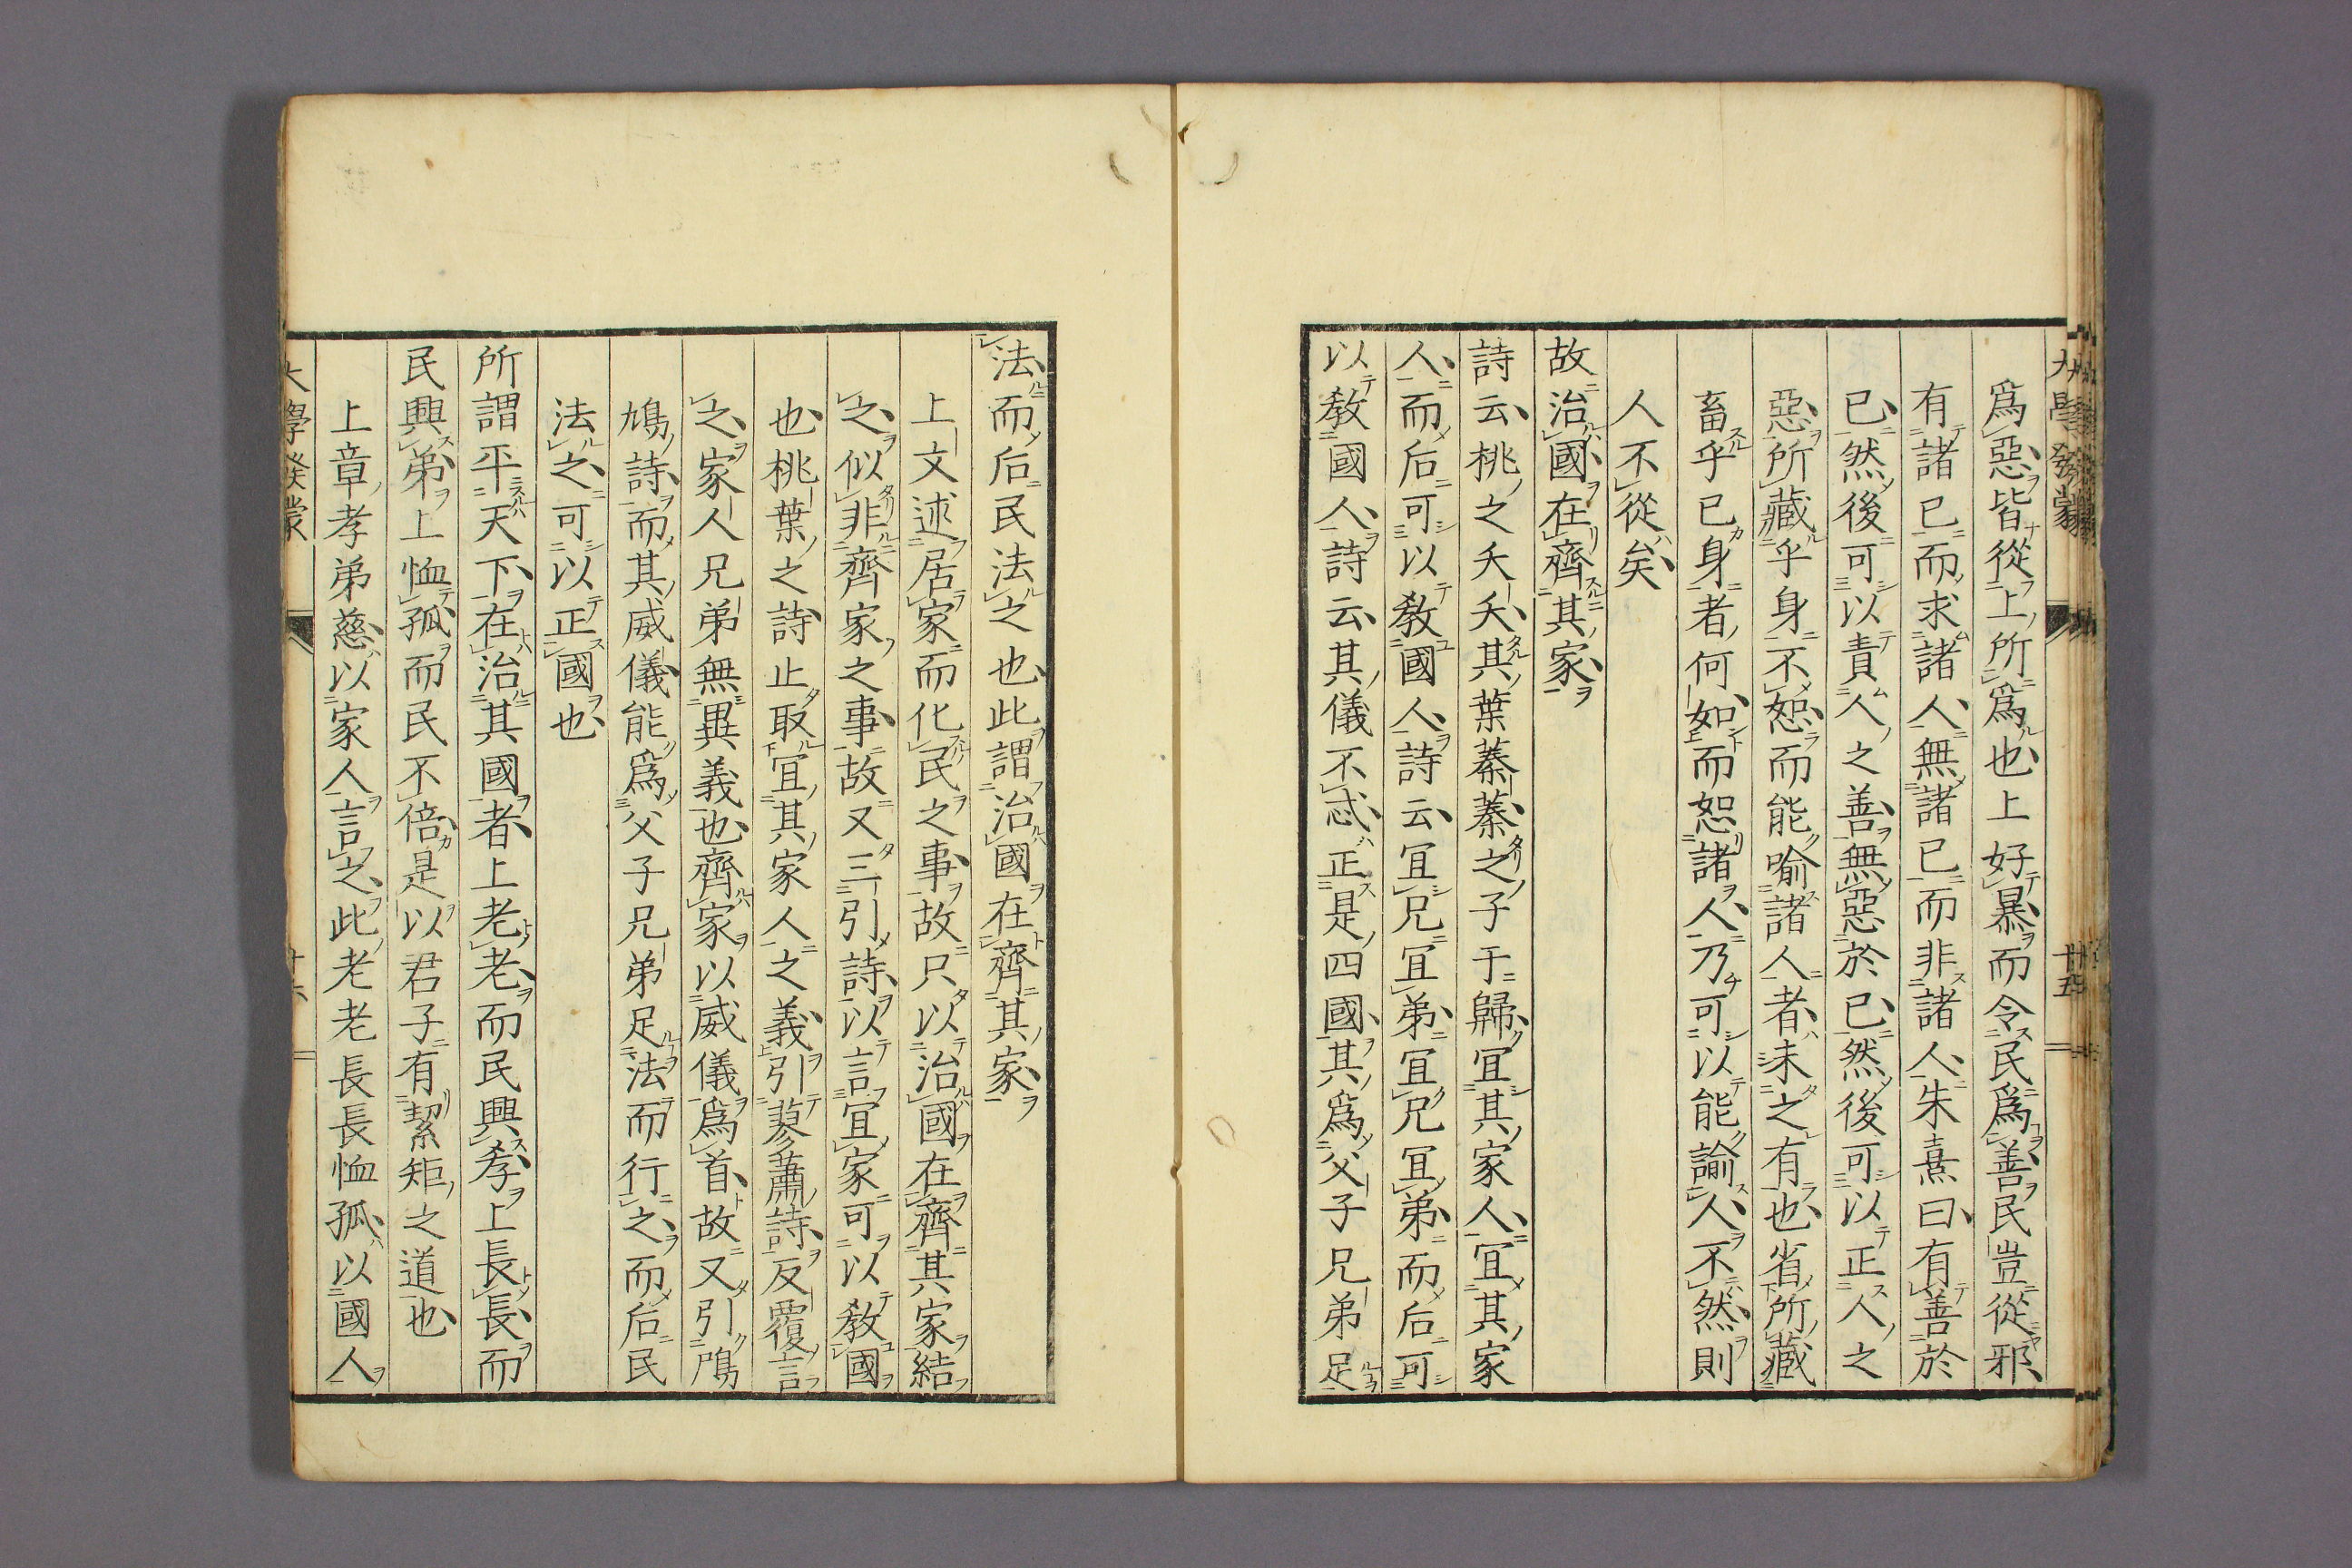 爲惡皆從上所爲也上好暴而令民爲善民豈從邪
有諸已而求諸人無諸已而非諸人朱熹曰有善於
已然後可以責人之善無惡於已然後可以正人之
惡所藏乎身不恕而能喻諸人者未之有也省所藏
畜乎已身者何如而恕諸人乃可以能諭人不然則
人不從矣
故治國在齊其家
詩云桃之夭夭其葉蓁蓁之子于歸宜其家人宜其家
人而后可以教國人詩云宜兄宜弟宜兄宜弟而后可
以教國人詩云其儀不忒正是四國其爲父子兄弟足
法而后民法之也此謂治國在齊其家
上文述居家而化民之事故只以治國在齊其家結
之似非齊家之事故又三引詩以言宜家可以教國
也桃葉之詩止取宜其家人之義引蓼蕭詩反覆言
之家人兄弟無異義也齊家以威儀爲首故又引鳲
鳩詩而其威儀能爲父子兄弟足法而行之而后民
法之可以正國也
所謂平天下在治其國者上老老而民興孝上長長而
民興弟上恤孤而民不倍是以君子有絜矩之道也
上章孝弟慈以家人言之此老老長長恤孤以國人
大學發蒙